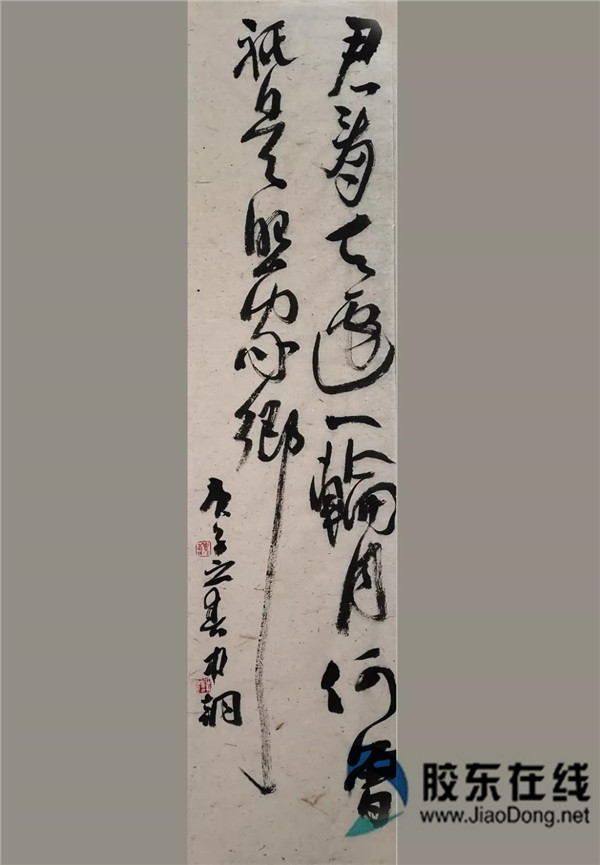 君看天邊一輪月何曾
祇是照家鄉
庚子之春
胶东在线
www.JiaoDong.net